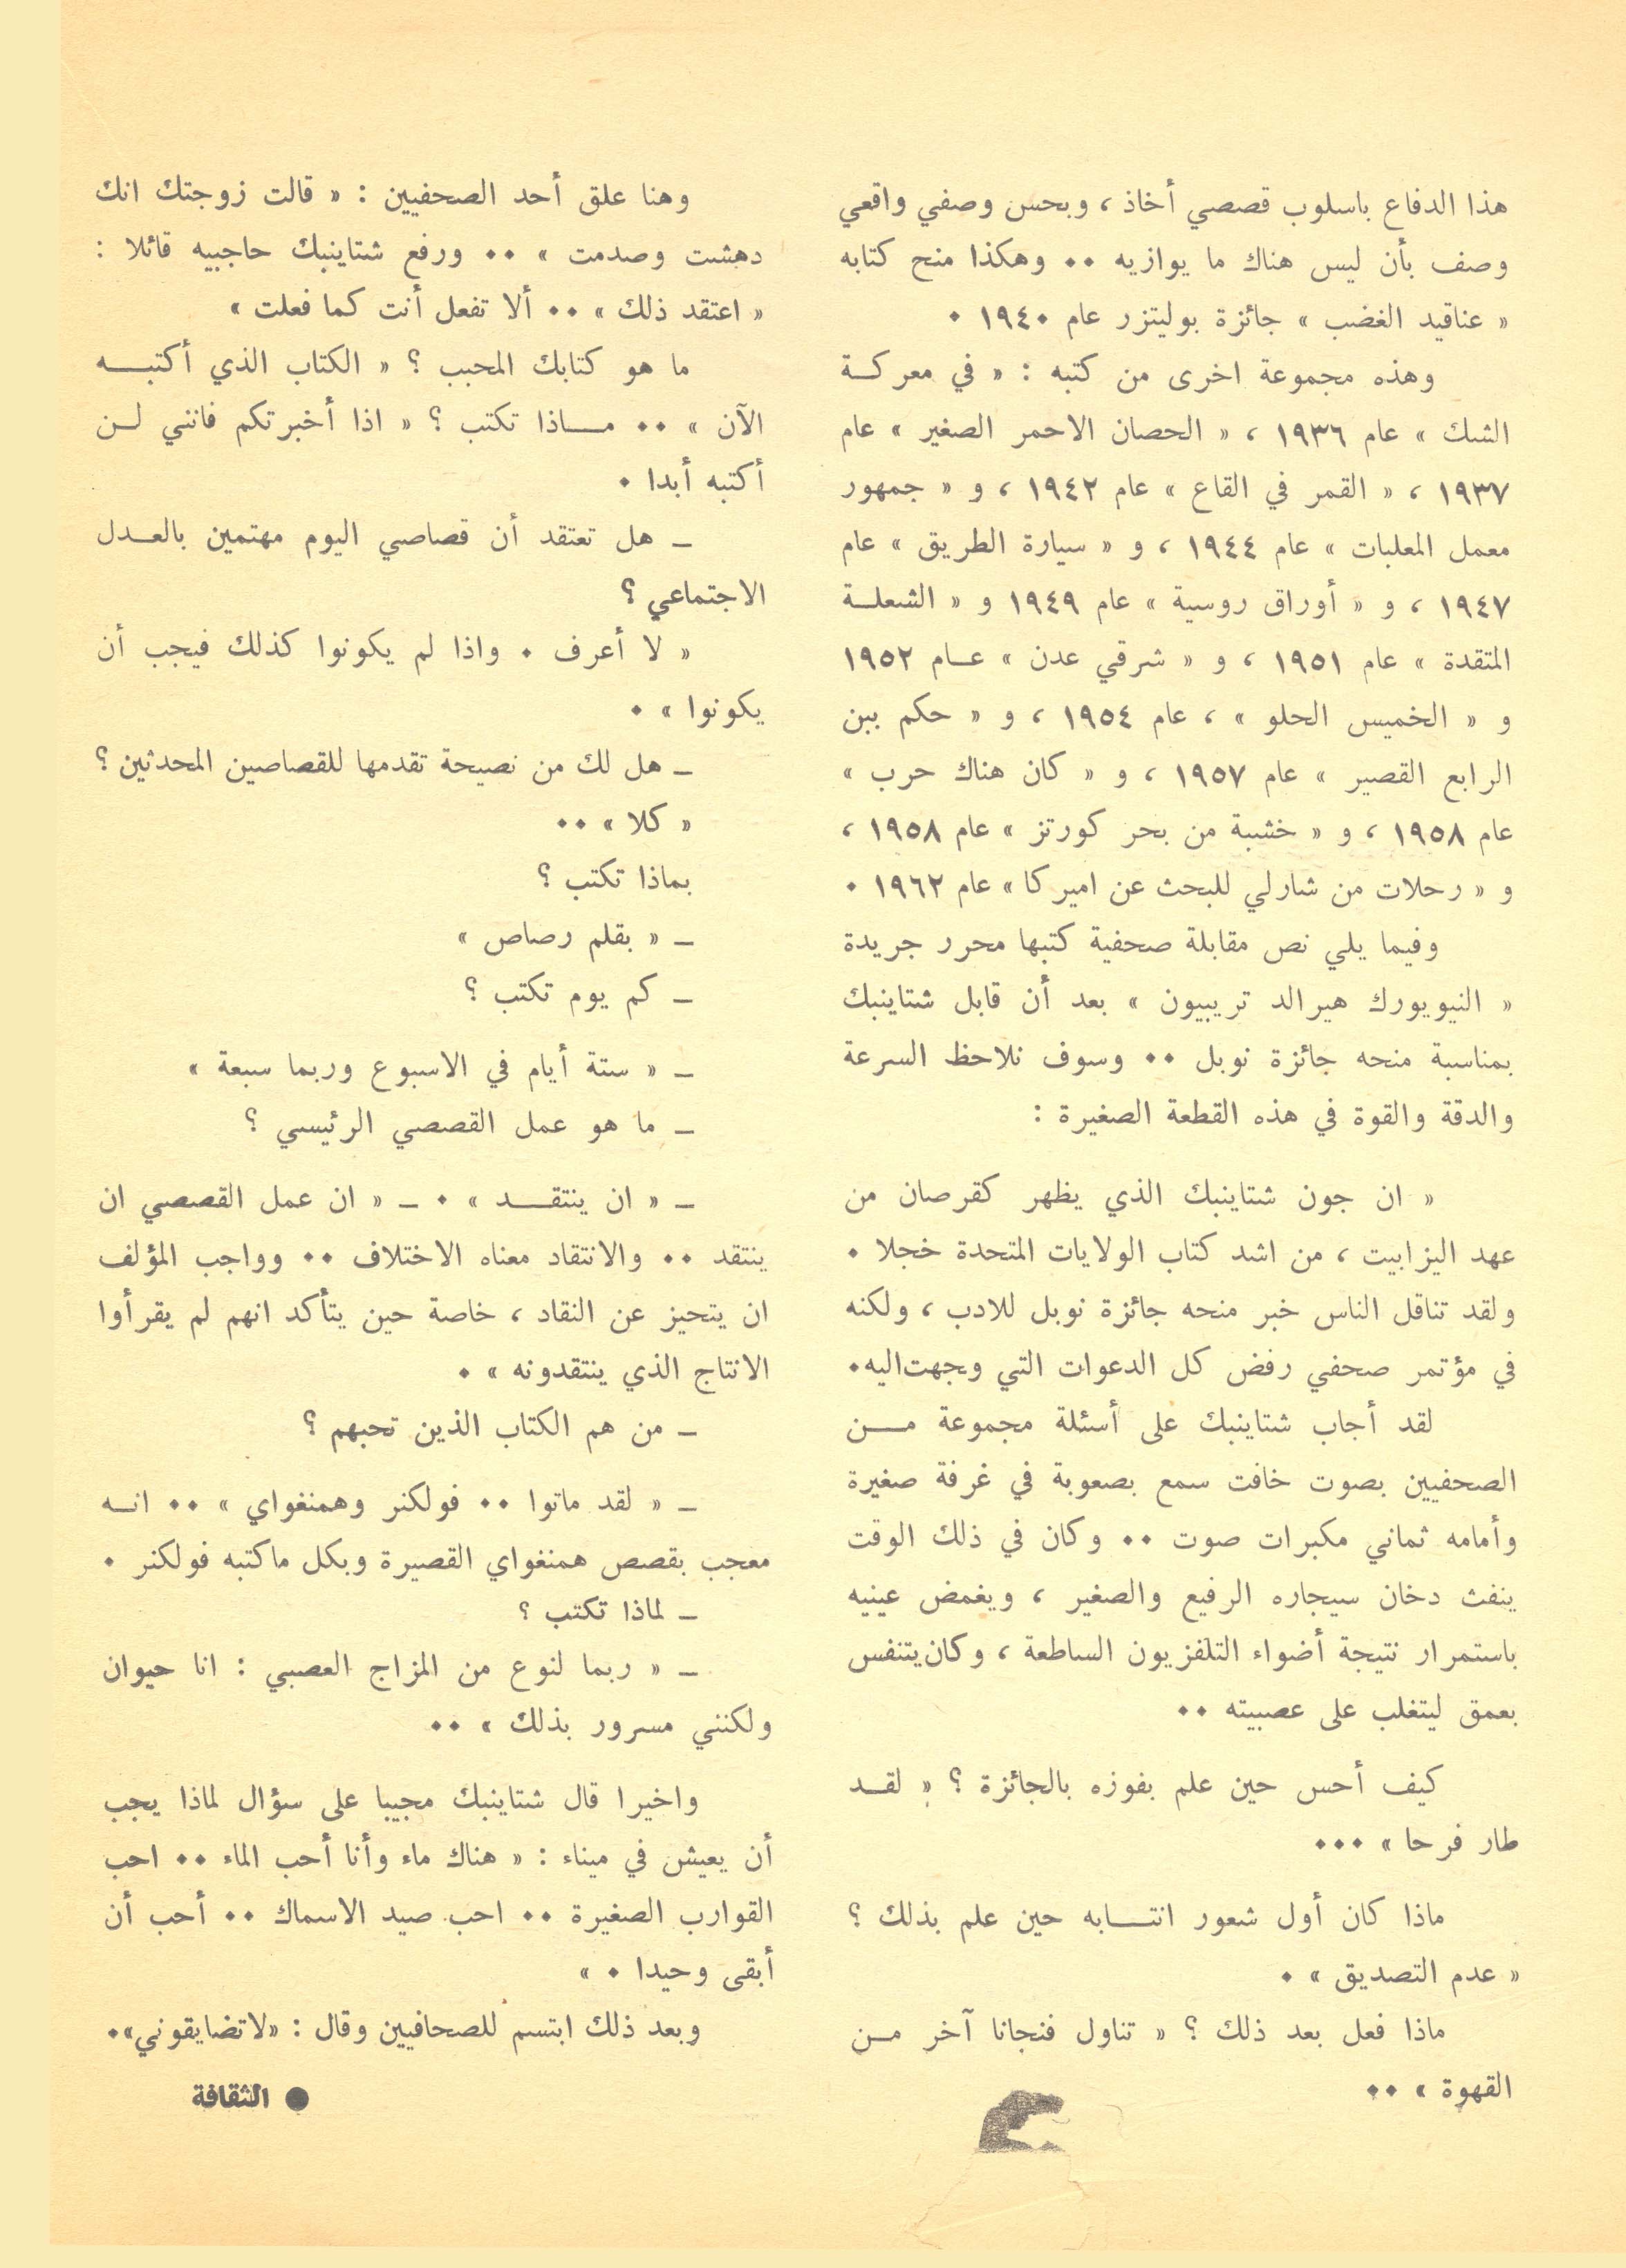 هذا الدفاع باسلوب قصصي أخاذ ، وبحس وصفي واقعي
وصف بأن ليس هناك ما يوازيه ٠٠ وهكذا منح كتابه
« عناقيد الغضب » جائزة بوليتزر عام ١٩٤٠ ٠
وهذه مجموعة اخرى من كتبه : « في معركة
الشك » عام ١٩٣٦ ، « الحصان الاحمر الصغير » عام
١٩٣٧ ، « القمر في القاع » عام ١٩٤٢ ، و « جمهور
معمل المعلبات » عام ١٩٤٤ ، و « سيارة الطريق » عام
١٩٤٧ ، و « أوراق روسية » عام ١٩٤٩ و « الشعلة
المتقدة » عام ١٩٥١ ، و « شرقي عدن » عام ١٩٥٢
و « الخميس الحلو » ، عام ١٩٥٤ ، و « حكم ببن
الرابع القصير » عام ١٩٥٧ ، و « كان هناك حرب »
عام ١٩٥٨ ، و « خشبة من بحر كورتز » عام ١٩٥٨ ،
و « رحلات من شارلي للبحث عن اميركا » عام ١٩٦٢ ٠
وفيما يلي نص مقابلة صحفية كتبها محرر جريدة
« النيويورك هيرالد تريبيون » بعد أن قابل شتاينبك
بمناسبة منحه جائزة نوبل ٠٠ وسوف نلاحظ السرعة
والدقة والقوة في هذه القطعة الصغيرة :
« ان جون شتاينبك الذي يظهر كقرصان من
عهد اليزابيت ، من اشد كتاب الولايات المتحدة خجلا ٠
ولقد تناقل الناس خبر منحه جائزة نوبل للادب ، ولكنه
في مؤتمر صحفي رفض كل الدعوات التي وجهت اليه ٠
لقد أجاب شتاينبك على أسئلة مجموعة من
الصحفيين بصوت خافت سمع بصعوبة في غرفة صغيرة
وأمامه ثماني مكبرات صوت ٠٠ وكان في ذلك الوقت
ينفث دخان سيجاره الرفيع والصغير ، ويغمض عينيه
باستمرار نتيجة أضواء التلفزيون الساطعة ، وكان يتنفس
بعمق ليتغلب على عصبيته ٠٠
كيف أحس حين علم بفوزه بالجائزة ؟ « لقد
طار فرحا » ٠٠٠
ماذا كان أول شعور انتابه حين علم بذلك ؟
« عدم التصديق » ٠
ماذا فعل بعد ذلك ؟ « تناول فنجانا آخر من
القهوة » ٠٠
وهنا علق أحد الصحفيين : « قالت زوجتك انك
دهشت وصدمت » ٠٠ ورفع شتاينبك حاجبيه قائلا :
« اعتقد ذلك » ٠٠ ألا تفعل أنت كما فعلت »
ما هو كتابك المحبب ؟ « الكتاب الذي أكتبه
الآن » ٠٠ ماذا تكتب ؟ « اذا أخبرتكم فانني لن
أكتبه أبدا ٠
ـ هل تعتقد أن قصاصي اليوم مهتمين بالعدل
الاجتماعي ؟
« لا أعرف ٠ واذا لم يكونوا كذلك فيجب أن
يكونوا » ٠
ـ هل لك من نصيحة تقدمها للقصاصين المحدثين ؟
« كلا » ٠٠
بماذا تكتب ؟
ـ « بقلم رصاص »
ـ كم يوم تكتب ؟
ـ « ستة أيام في الاسبوع وربما سبعة »
ـ ما هو عمل القصصي الرئيسي ؟
ـ « ان ينتقد » ٠ ـ « ان عمل القصصي ان
ينتقد ٠٠ والانتقاد معناه الاختلاف ٠٠ وواجب المؤلف
ان يتحيز عن النقاد ، خاصة حين يتأكد انهم لم يقرأوا
الانتاج الذي ينتقدونه » ٠
ـ من هم الكتاب الذين تحبهم ؟
ـ « لقد ماتوا ٠٠ فولكنر وهمنغواي » ٠٠ انه
معجب بقصص همنغواي القصيرة وبكل ماكتبه فولكنر ٠
ـ لماذا تكتب ؟
ـ « ربما لنوع من المزاج العصبي : انا حيوان
ولكنني مسرور بذلك » ٠٠
واخيرا قال شتاينبك مجيبا على سؤال لماذا يجب
أن يعيش في ميناء : « هناك ماء وأنا أحب الماء ٠٠ احب
القوارب الصغيرة ٠٠ احب صيد الاسماك ٠٠ أحب أن
أبقى وحيدا ٠ »
وبعد ذلك ابتسم للصحافيين وقال : «لاتضايقوني» ٠
● الثقافة